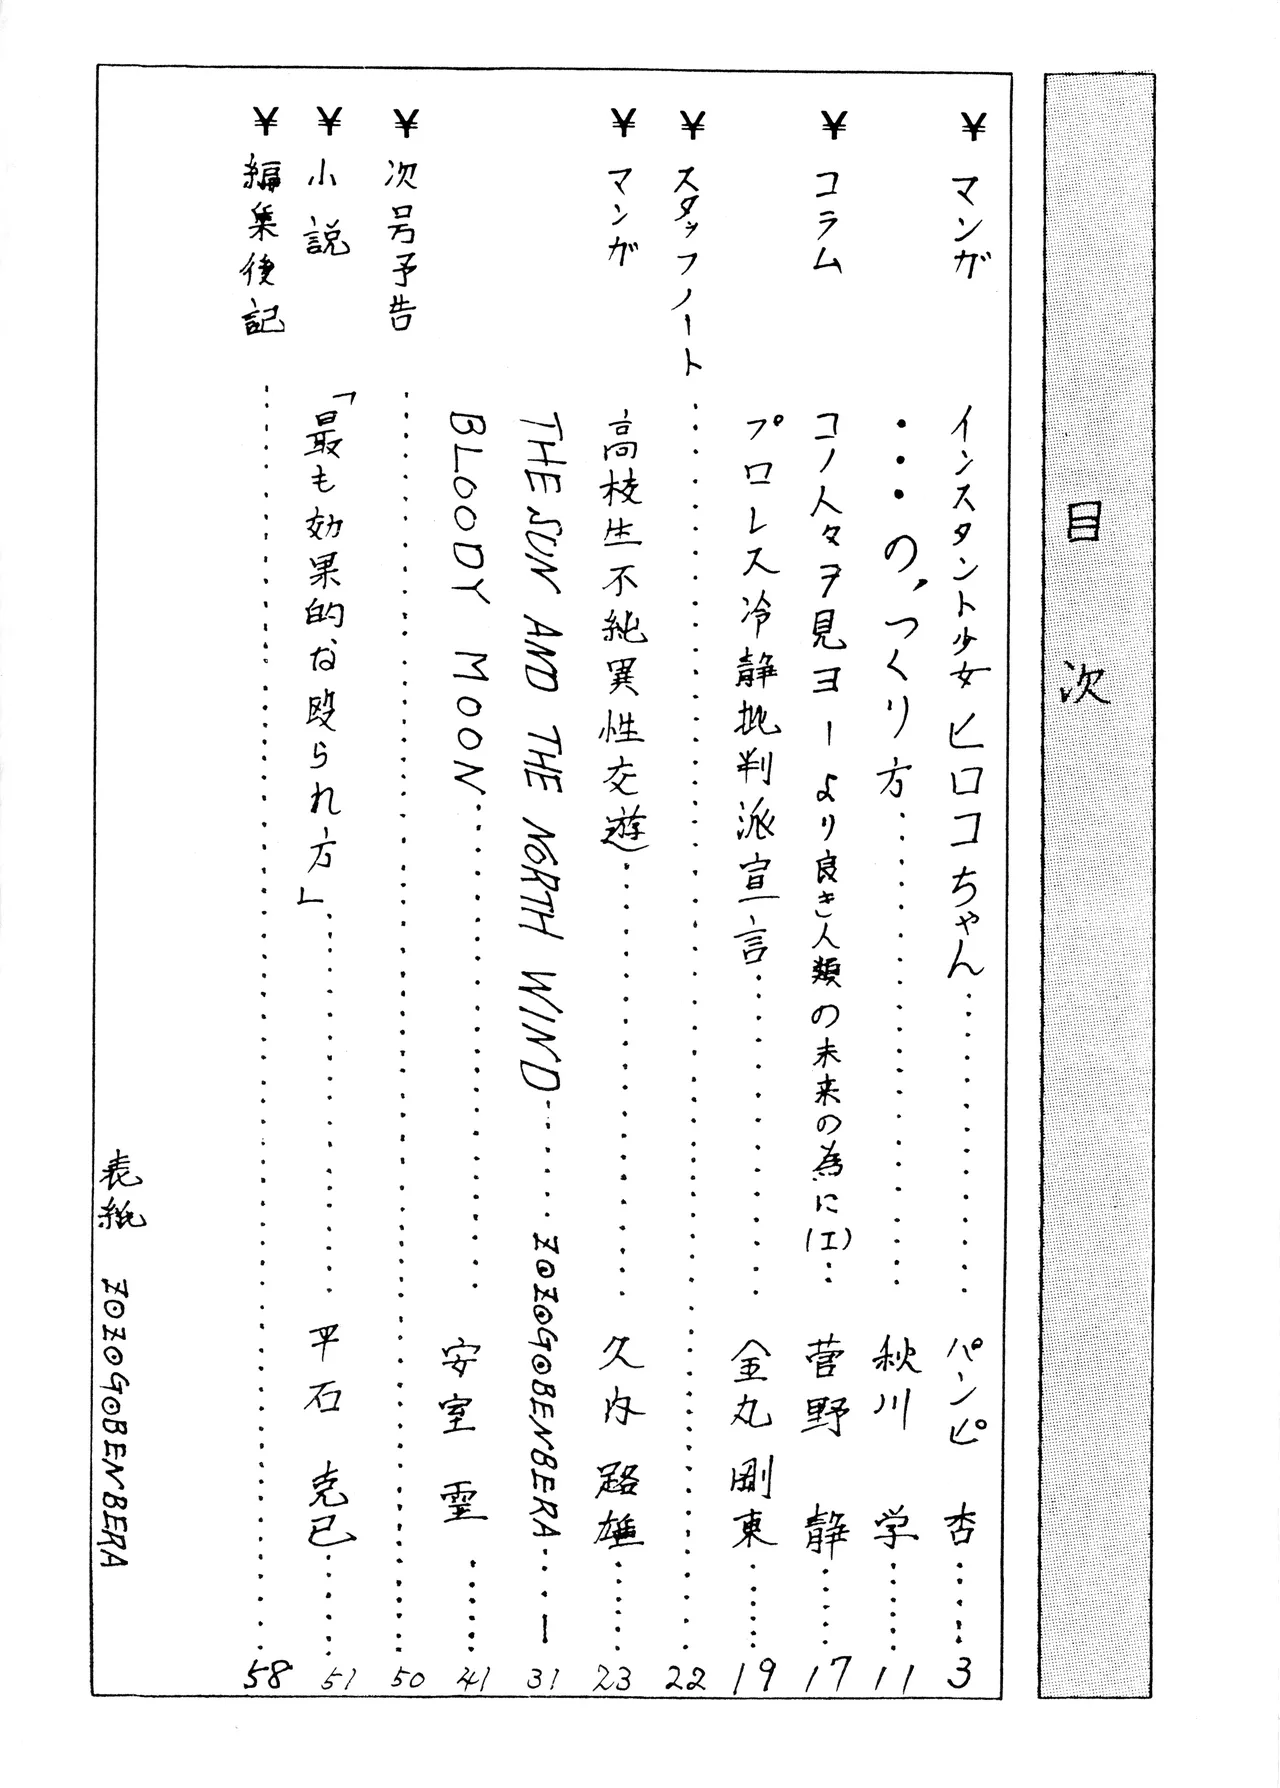 目次
¥ マンガ インスタント少女ヒロコちゃん………… パンピ 杏…… 3
・・・の、つくり方………… 秋川 学…… 11
¥ コラム コノ人々ヲ見ヨー より良き人類の未来の為に(エ)… 菅野 静…… 17
プロレス冷静批判派宣言………… 金丸剛東…… 19
¥ スタッフノート………… 22
¥ マンガ 高校生不純異性交遊………… 久内 路雄…… 23
THE SUN AND THE NORTH WIND…… ZOZOGOBENBERA…ー 31
BLOODY MOON………… 安室 雪…… 41
¥ 次号予告………… 50
¥ 小説 「最も効果的な殴られ方」………… 平石 克已…… 51
¥ 編集後記………… 58
表紙 ZOZOGOBENBERA